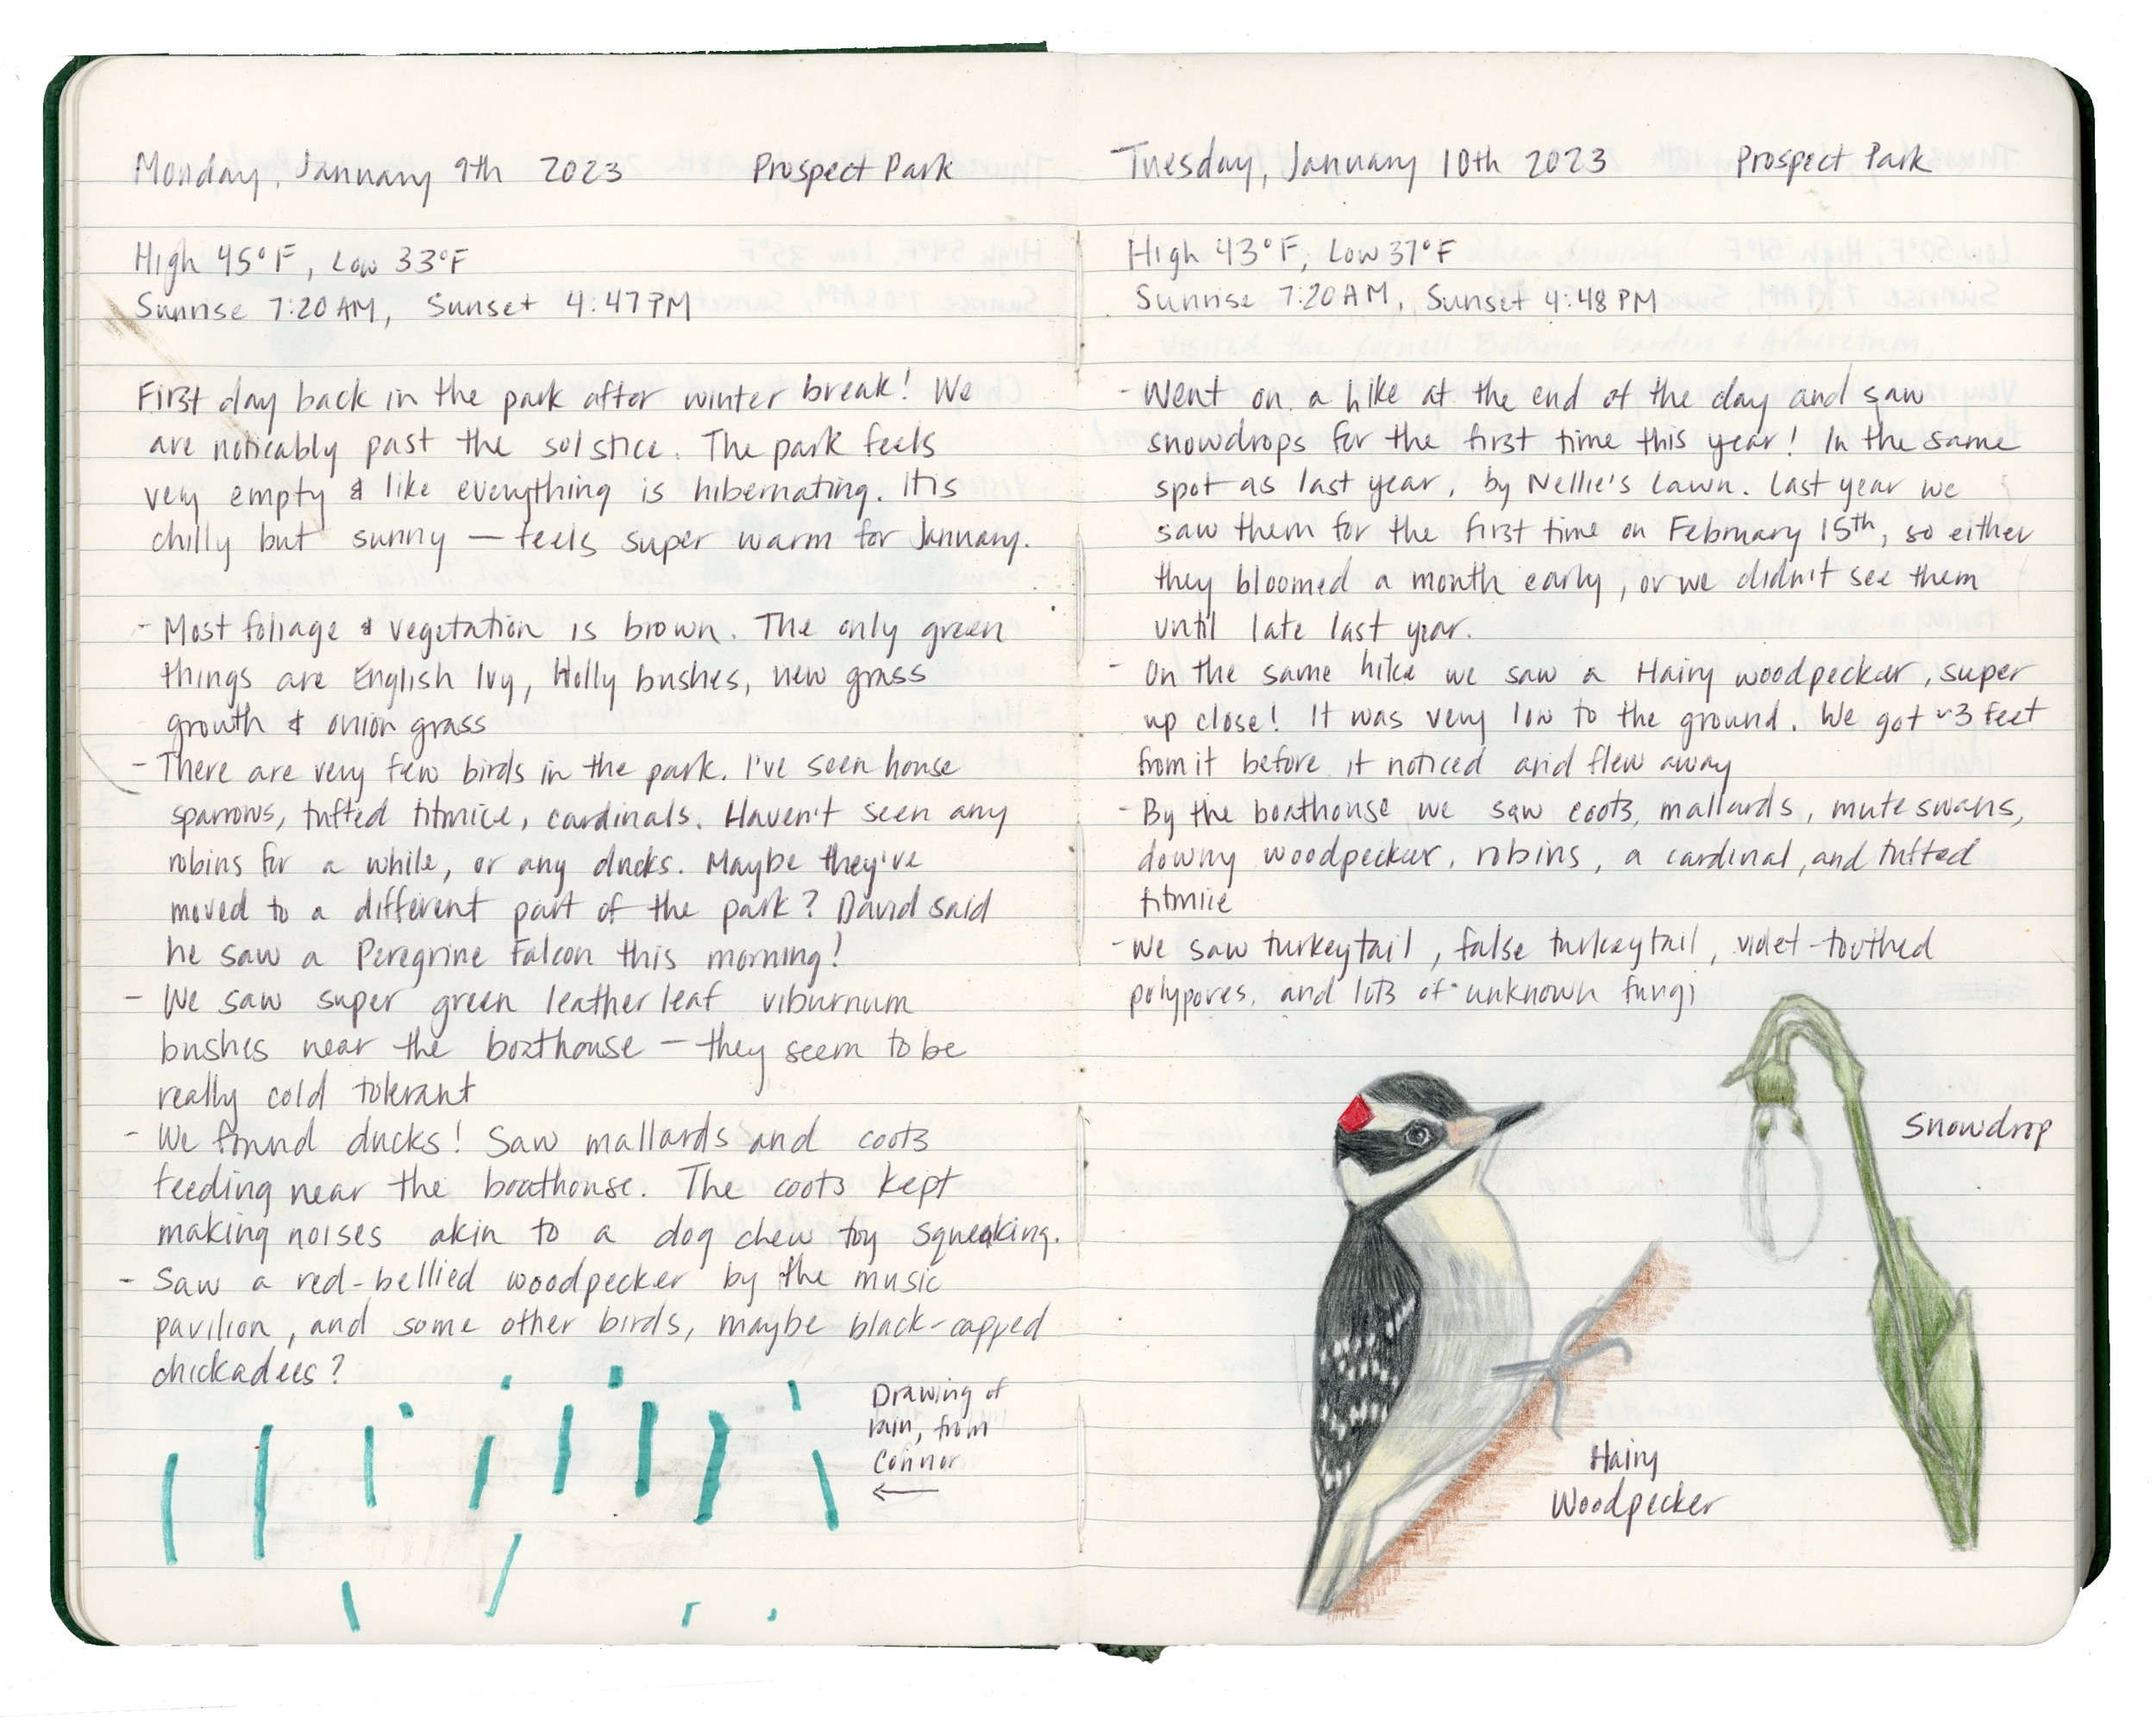 Monday, January 9th 2023 Prospect Park
High 45°F, Low 33°F
Sunrise 7:20AM, Sunset 4:47PM
First day back in the park after winter break! We
are noticably past the solstice. The park feels
very empty & like everything is hibernating. It is
chilly but sunny — feels super warm for January.
- Most foliage & vegetation is brown. The only green
things are English Ivy, Holly bushes, new grass
growth & onion grass
- There are very few birds in the park. I've seen house
sparrows, tufted titmice, cardinals. Haven't seen any
robins for a while, or any ducks. Maybe they've
moved to a different part of the park? David said
he saw a Peregrine Falcon this morning!
- We saw super green leatherleaf viburnum
bushes near the boathouse — they seem to be
really cold tolerant
- We found ducks! Saw mallards and coots
feeding near the boathouse. The coots kept
making noises akin to a dog chew toy squeaking.
- Saw a red-bellied woodpecker by the music
pavilion, and some other birds, maybe black-capped
chickadees?
Drawing of
rain, from
Connor
←
Tuesday, January 10th 2023 Prospect Park
High 43°F, Low 37°F
Sunrise 7:20AM, Sunset 4:48PM
- Went on a hike at the end of the day and saw
snowdrops for the first time this year! In the same
spot as last year, by Nellie's Lawn. Last year we
saw them for the first time on February 15th, so either
they bloomed a month early, or we didn't see them
until late last year.
- On the same hike we saw a Hairy woodpecker, super
up close! It was very low to the ground. We got ~3 feet
from it before it noticed and flew away
- By the boathouse we saw coots, mallards, mute swans,
downy woodpecker, robins, a cardinal, and tufted
titmice
- We saw turkeytail, false turkeytail, violet-toothed
polypores, and lots of unknown fungi
Snowdrop
Hairy
Woodpecker